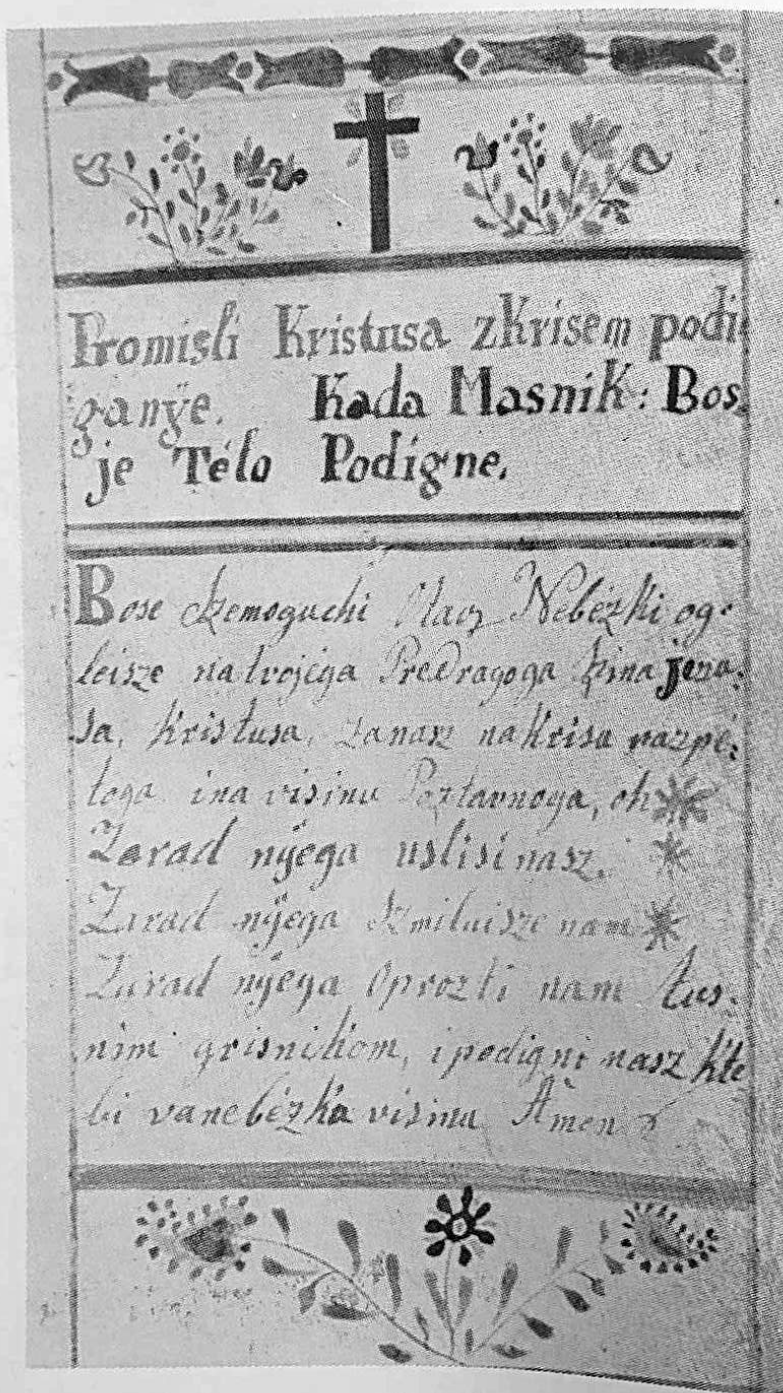 Promisli Kristusa zkrisem podi:
ganÿe. Kada Masnik: Bos:
je Télo Podigne.
Bose szemoguchi Otacz Nebézki og:
leisze natvojega Predragoga szina jezu:
sa, Kristusa, zanasz nakrisu razpé:
toga ina visinu Poztavnoga, oh
Zarad nÿega uslisi nasz.
Zarad nÿega szmiluisze nam
Zarad nÿega oprozti nam tus:
nim grisnikom, i podigni nasz kte
bi vanebézku visinu Amen